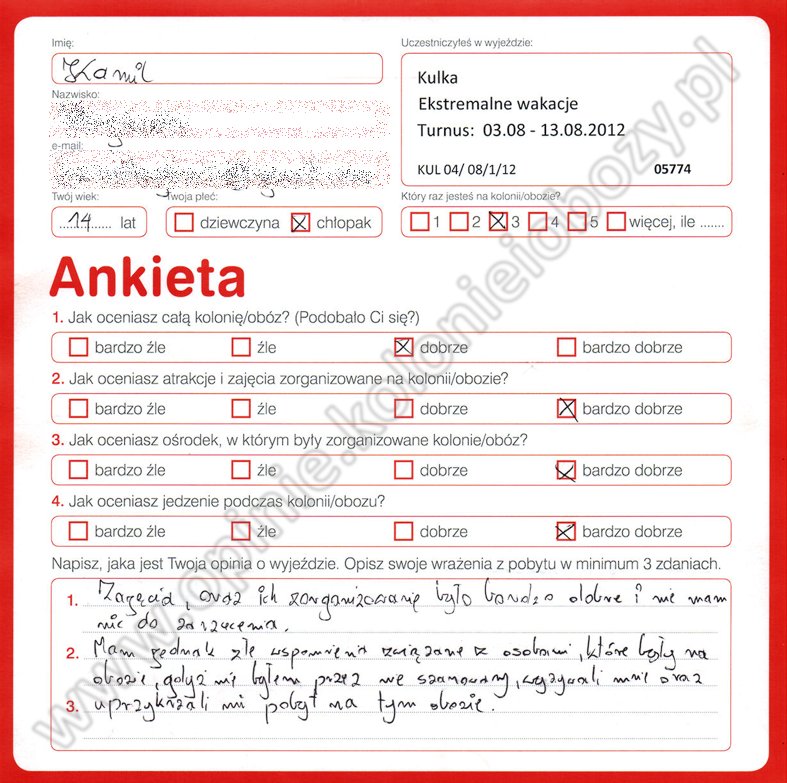 Imię:
Kamil
Uczestniczyłeś w wyjeździe:
Kulka
Ekstremalne wakacje
Turnus: 03.08 - 13.08.2012
KUL 04/ 08/1/12 05774
Nazwisko:
e-mail:
Twój wiek:
14 lat
Twoja płeć:
dziewczyna chłopak
Który raz jesteś na kolonii/obozie?
1 2 3 4 5 więcej, ile .......
Ankieta
1. Jak oceniasz całą kolonię/obóz? (Podobało Ci się?)
bardzo źle źle dobrze bardzo dobrze
2. Jak oceniasz atrakcje i zajęcia zorganizowane na kolonii/obozie?
bardzo źle źle dobrze bardzo dobrze
3. Jak oceniasz ośrodek, w którym były zorganizowane kolonie/obóz?
bardzo źle źle dobrze bardzo dobrze
4. Jak oceniasz jedzenie podczas kolonii/obozu?
bardzo źle źle dobrze bardzo dobrze
Napisz, jaka jest Twoja opinia o wyjeździe. Opisz swoje wrażenia z pobytu w minimum 3 zdaniach.
1. Zajęcia, oraz ich zorganizowanie było bardzo dobre i nie mam
nic do zarzucenia.
2. Mam jednak złe wspomnienia związane z osobami, które były na
obozie, gdyż nie byłem przez nie szanowany, wyzywali mnie oraz
3. uprzykrzali mi pobyt na tym obozie.
www.opinie.kolonieiobozy.pl